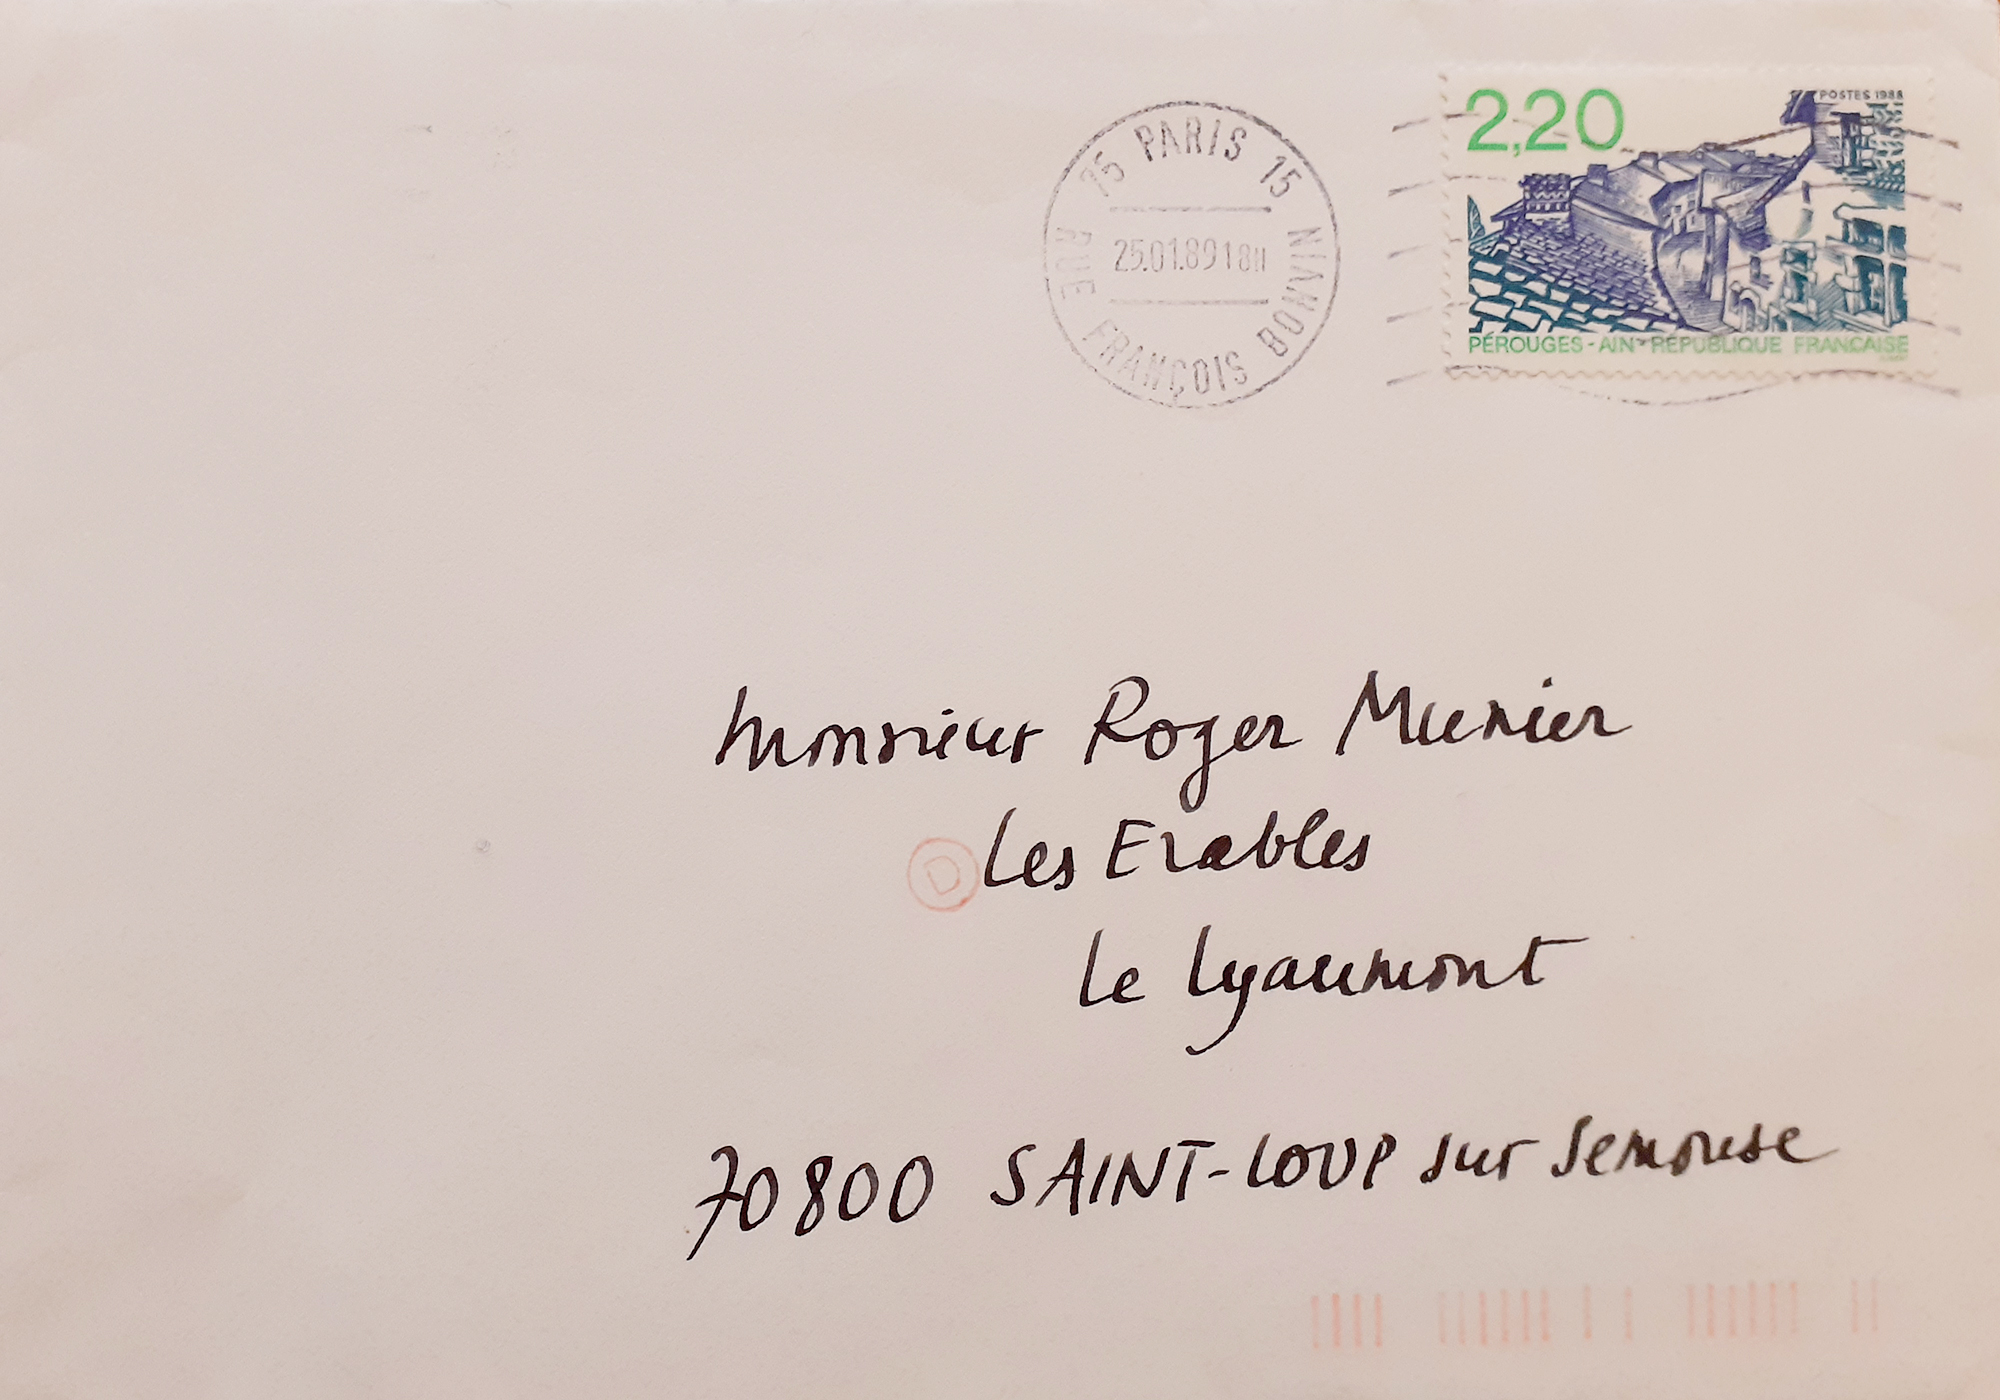 2,20
POSTES 1988
PÉROUGES - AIN - RÉPUBLIQUE FRANÇAISE
75 PARIS 15
25.01.89 18H
RUE FRANÇOIS BONVIN
Monsieur Roger Munier
D
Les Erables
Le Lyaumont
70800 SAINT-LOUP sur Semouse